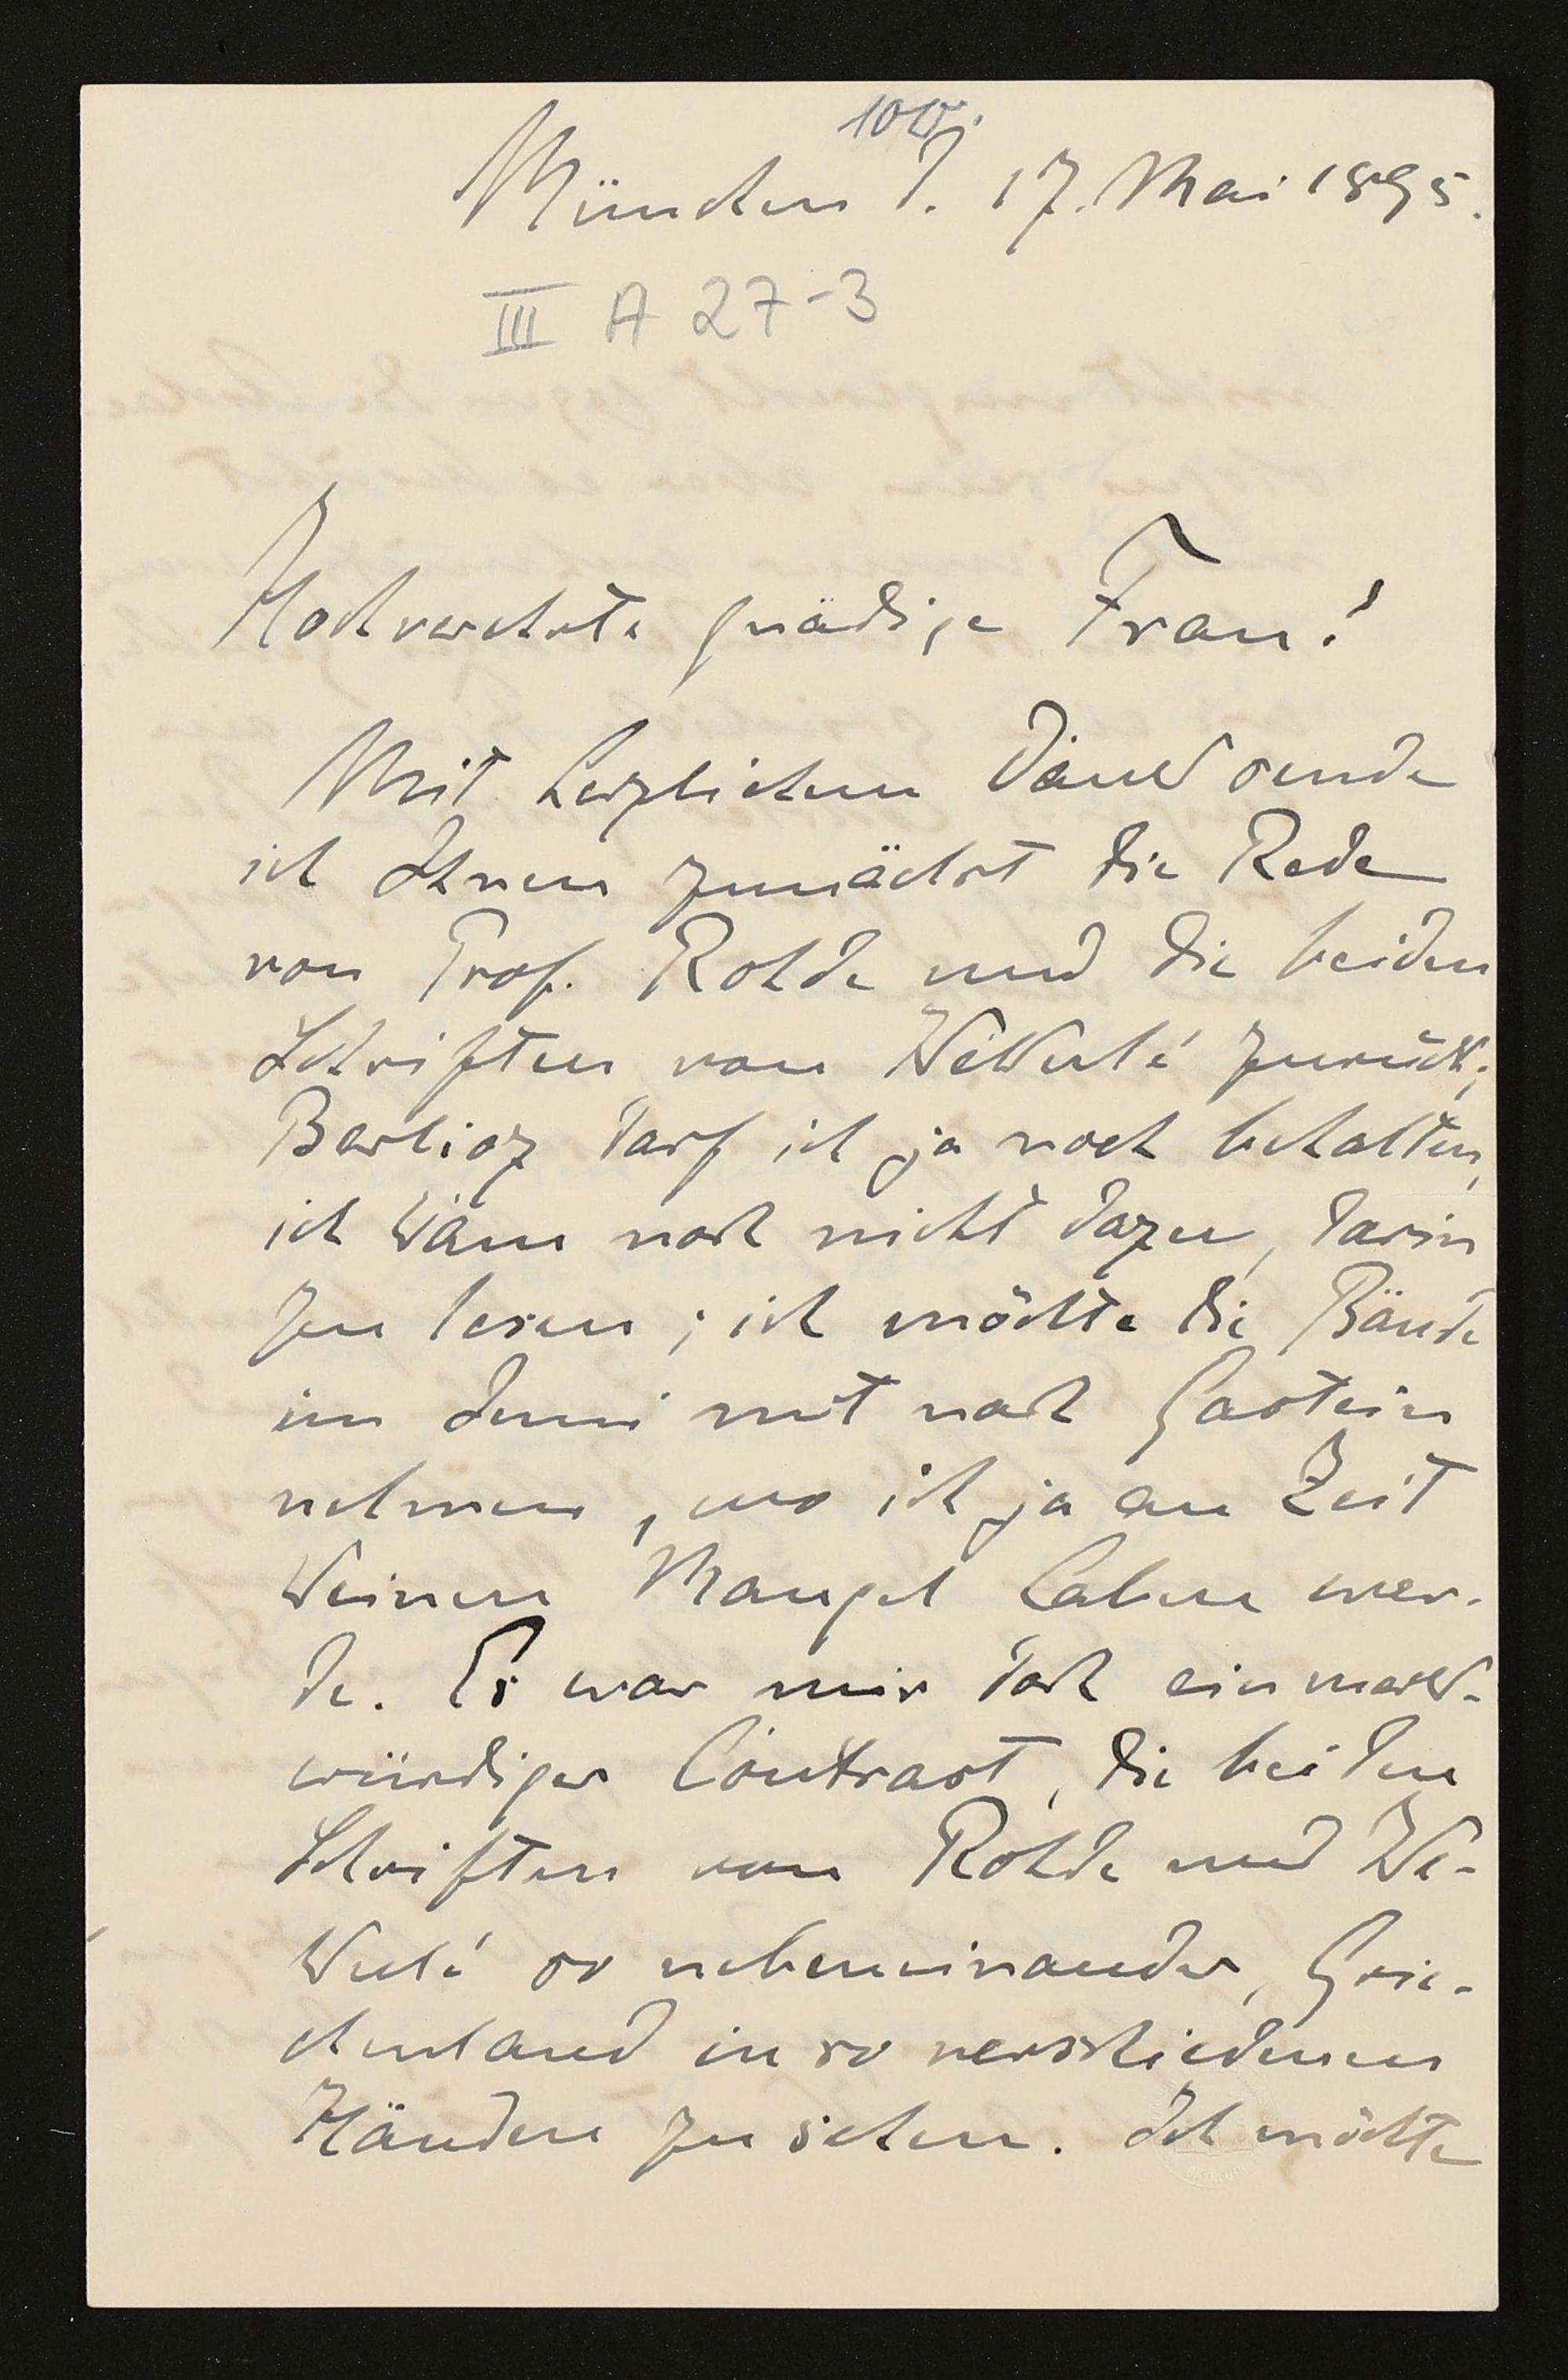 München d. 17. Mai 1895.
III A 27-3
Hochverehrte gnädige Frau!
Mit herzlichem Dank sende
ich Ihnen zunächst die Rede
von Prof. Rohde und die beiden
Schriften von Kékulé zurück;
Berlioz darf ich ja noch behalten,
ich kam noch nicht dazu, darin
zu lesen; ich möchte die Bände
im Juni mit nach Gastein
nehmen, wo ich ja an Zeit
keinen Mangel haben wer-
de. Es war mir doch ein merk-
würdiger Contrast, die beiden
Schriften von Rohde und Ke-
kulé so nebeneinander, Grie-
chenland in so verschiedenen
Händen zu sehen. Ich möchte